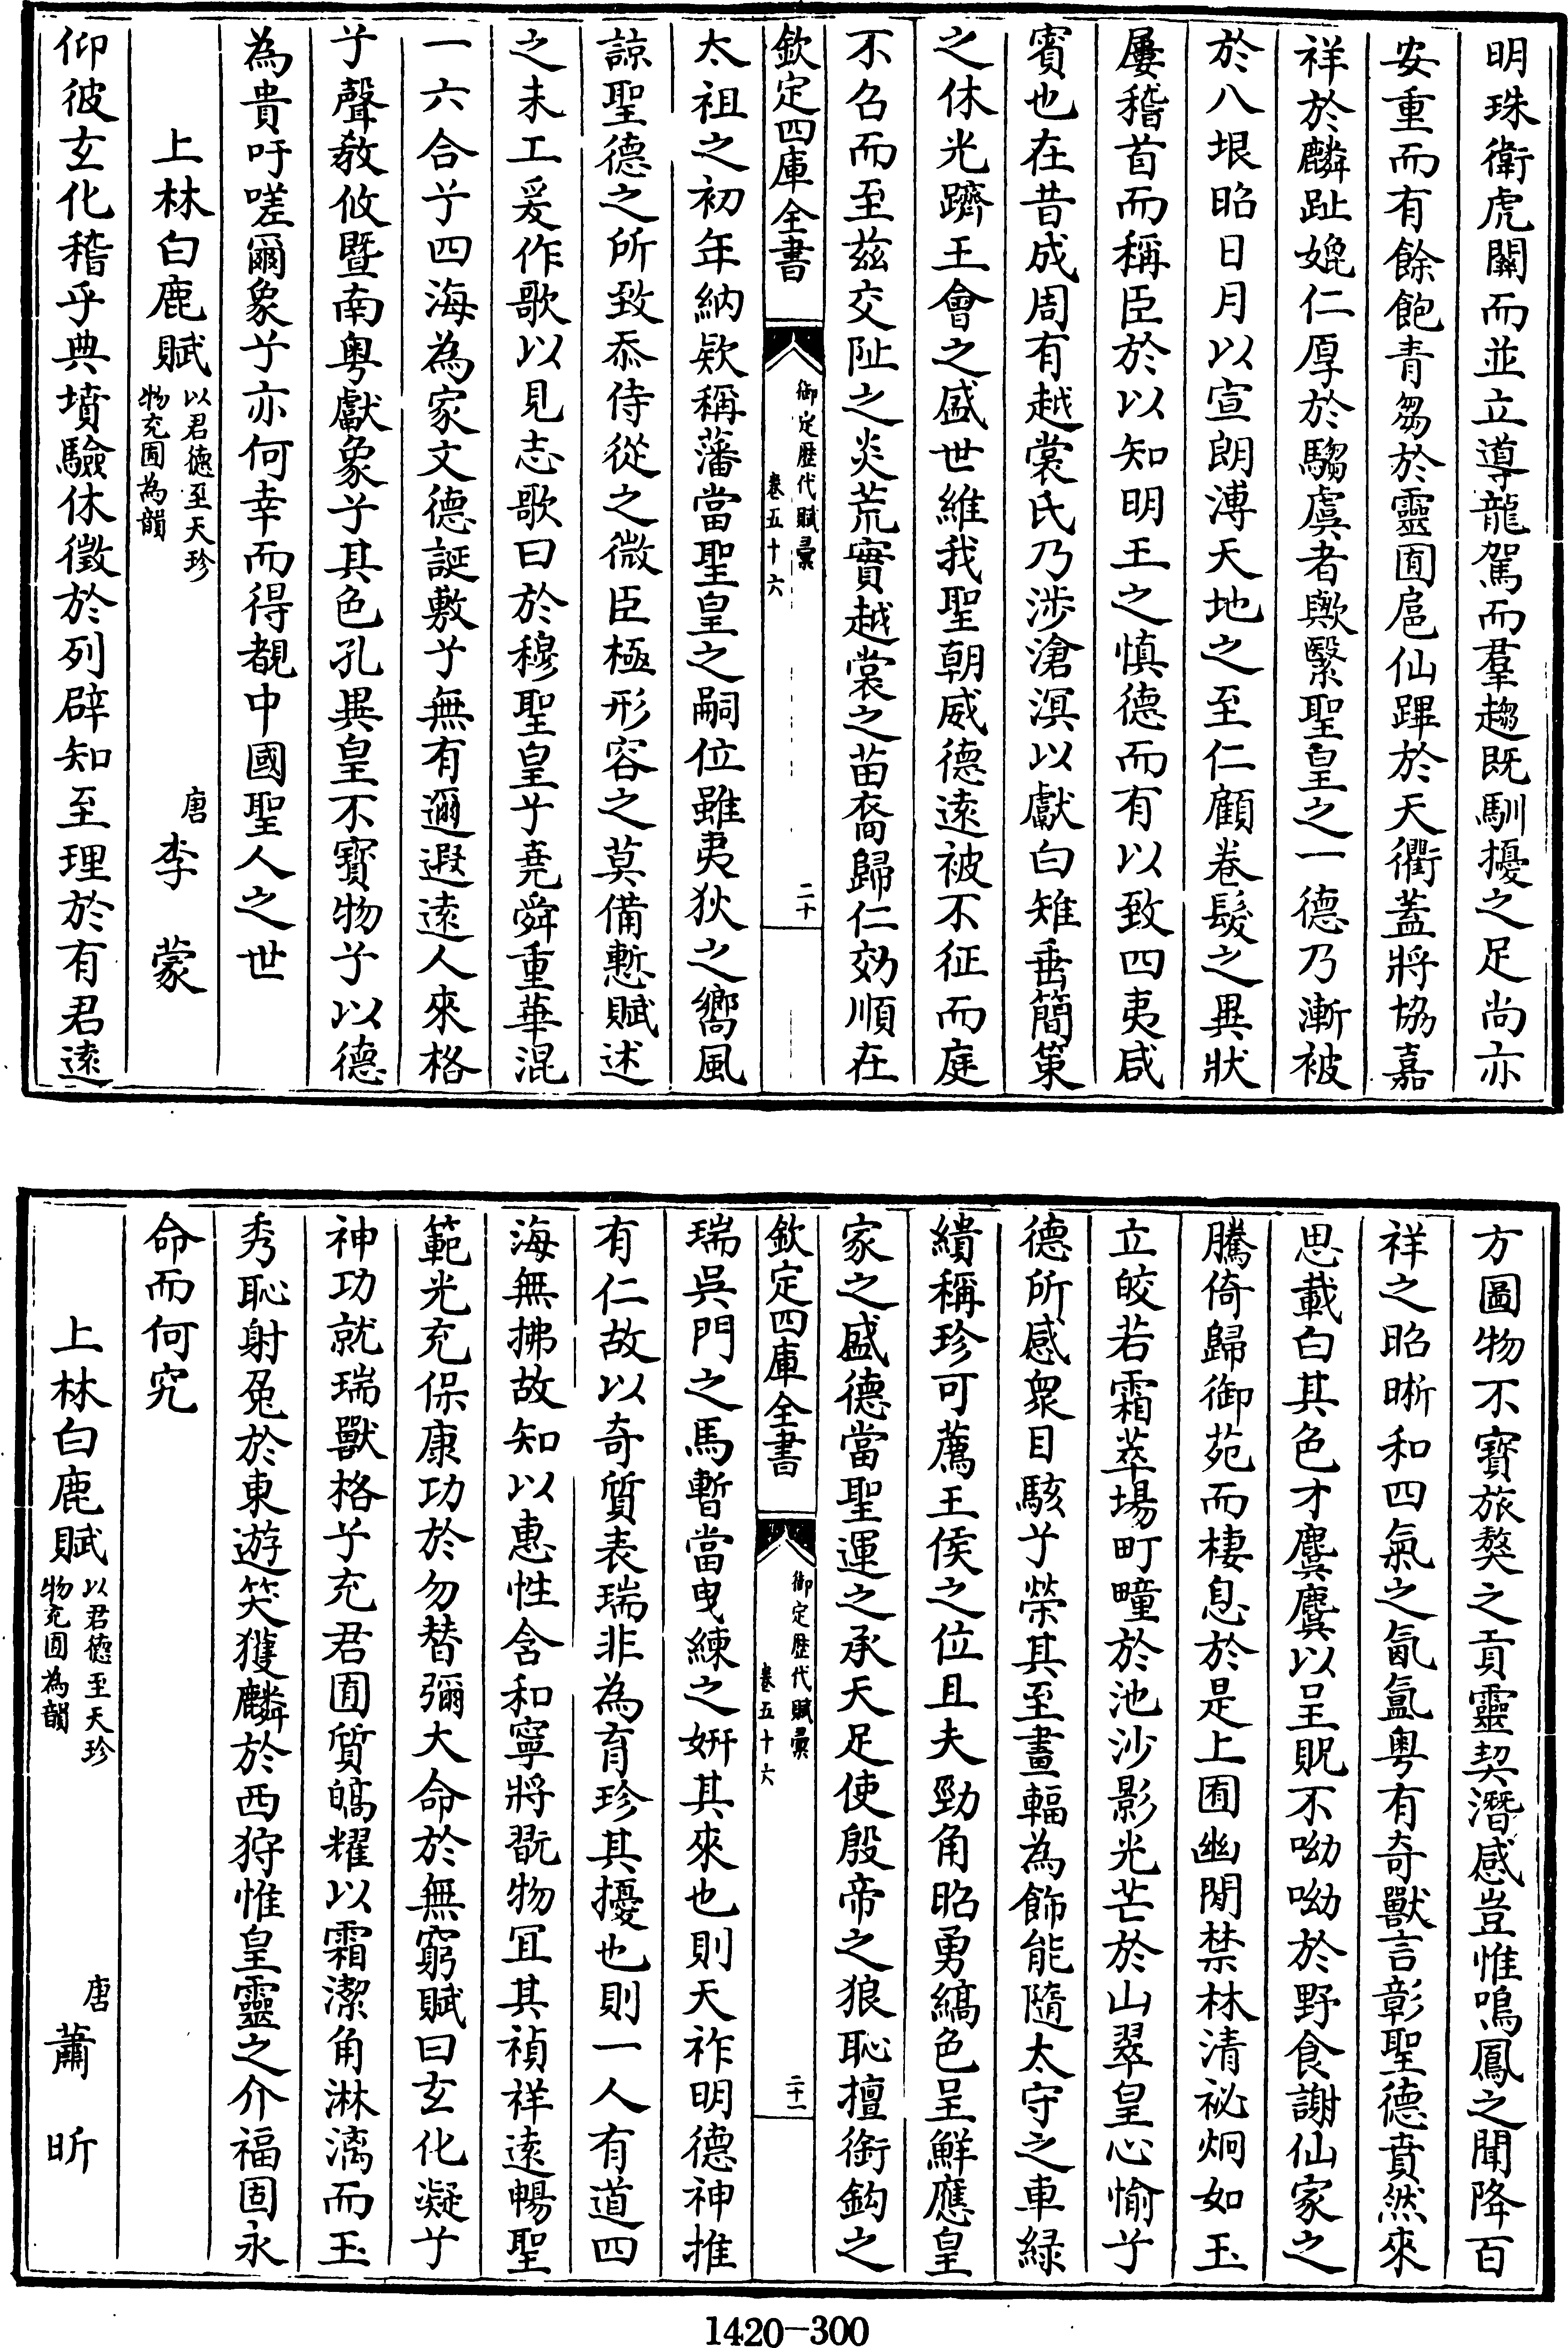 明珠衛虎闗而並立導龍駕而羣趨既馴擾之足尚亦
安重而有餘飽青芻於靈囿扈仙蹕於天衢蓋將協嘉
祥於麟趾媲仁厚於騶虞者歟繄聖皇之一德乃漸被
於八垠昭日月以宣朗溥天地之至仁顧卷髮之異狀
屢稽首而稱臣於以知明王之慎德而有以致四夷咸
賓也在昔成周有越裳氏乃涉滄溟以獻白雉垂簡策
之休光躋王會之盛世維我聖朝威德逺被不征而庭
不召而至茲交阯之炎荒實越裳之苗裔歸仁効順在
欽定四庫全書
御定歴代賦彙
卷五十六
二十
太祖之初年納欵稱藩當聖皇之嗣位雖夷狄之嚮風
諒聖德之所致忝侍從之微臣極形容之莫備慙賦述
之未工爰作歌以見志歌曰於穆聖皇兮堯舜重華混
一六合兮四海為家文德誕敷兮無有邇遐逺人來格
兮聲教攸暨南粤獻象兮其色孔異皇不寳物兮以德
為貴吁嗟爾象兮亦何幸而得覩中國聖人之世
上林白鹿賦
以君徳至天珍
物充囿為韻
唐
李蒙
仰彼玄化稽乎典墳驗休徵於列辟知至理於有君逺
方圖物不寳旅獒之貢靈契潛感豈惟鳴鳳之聞降百
祥之昭晰和四氣之氤氳粤有奇獸言彰聖德賁然來
思載白其色才麌麌以呈貺不呦呦於野食謝仙家之
騰倚歸御苑而棲息於是上囿幽閒禁林清祕炯如玉
立皎若霜萃場町畽於池沙影光芒於山翠皇心愉兮
德所感衆目駭兮榮其至畫輻為飾能隨太守之車緑
繢稱珍可薦王侯之位且夫勁角昭勇縞色呈鮮應皇
家之盛德當聖運之承天足使殷帝之狼恥擅銜鈎之
欽定四庫全書
御定歴代賦彙
卷五十六
二十一
瑞吳門之馬暫當曳練之妍其來也則天祚明德神推
有仁故以奇質表瑞非為育珍其擾也則一人有道四
海無拂故知以惠性含和寧將翫物冝其禎祥逺暢聖
範光充保康功於勿替彌大命於無窮賦曰玄化凝兮
神功就瑞獸格兮充君囿質皜耀以霜潔角淋漓而玉
秀恥射兎於東遊笑獲麟於西狩惟皇靈之介福固永
命而何究
上林白鹿賦
以君徳至天珍
物充囿為韻
唐
蕭昕
1420-300